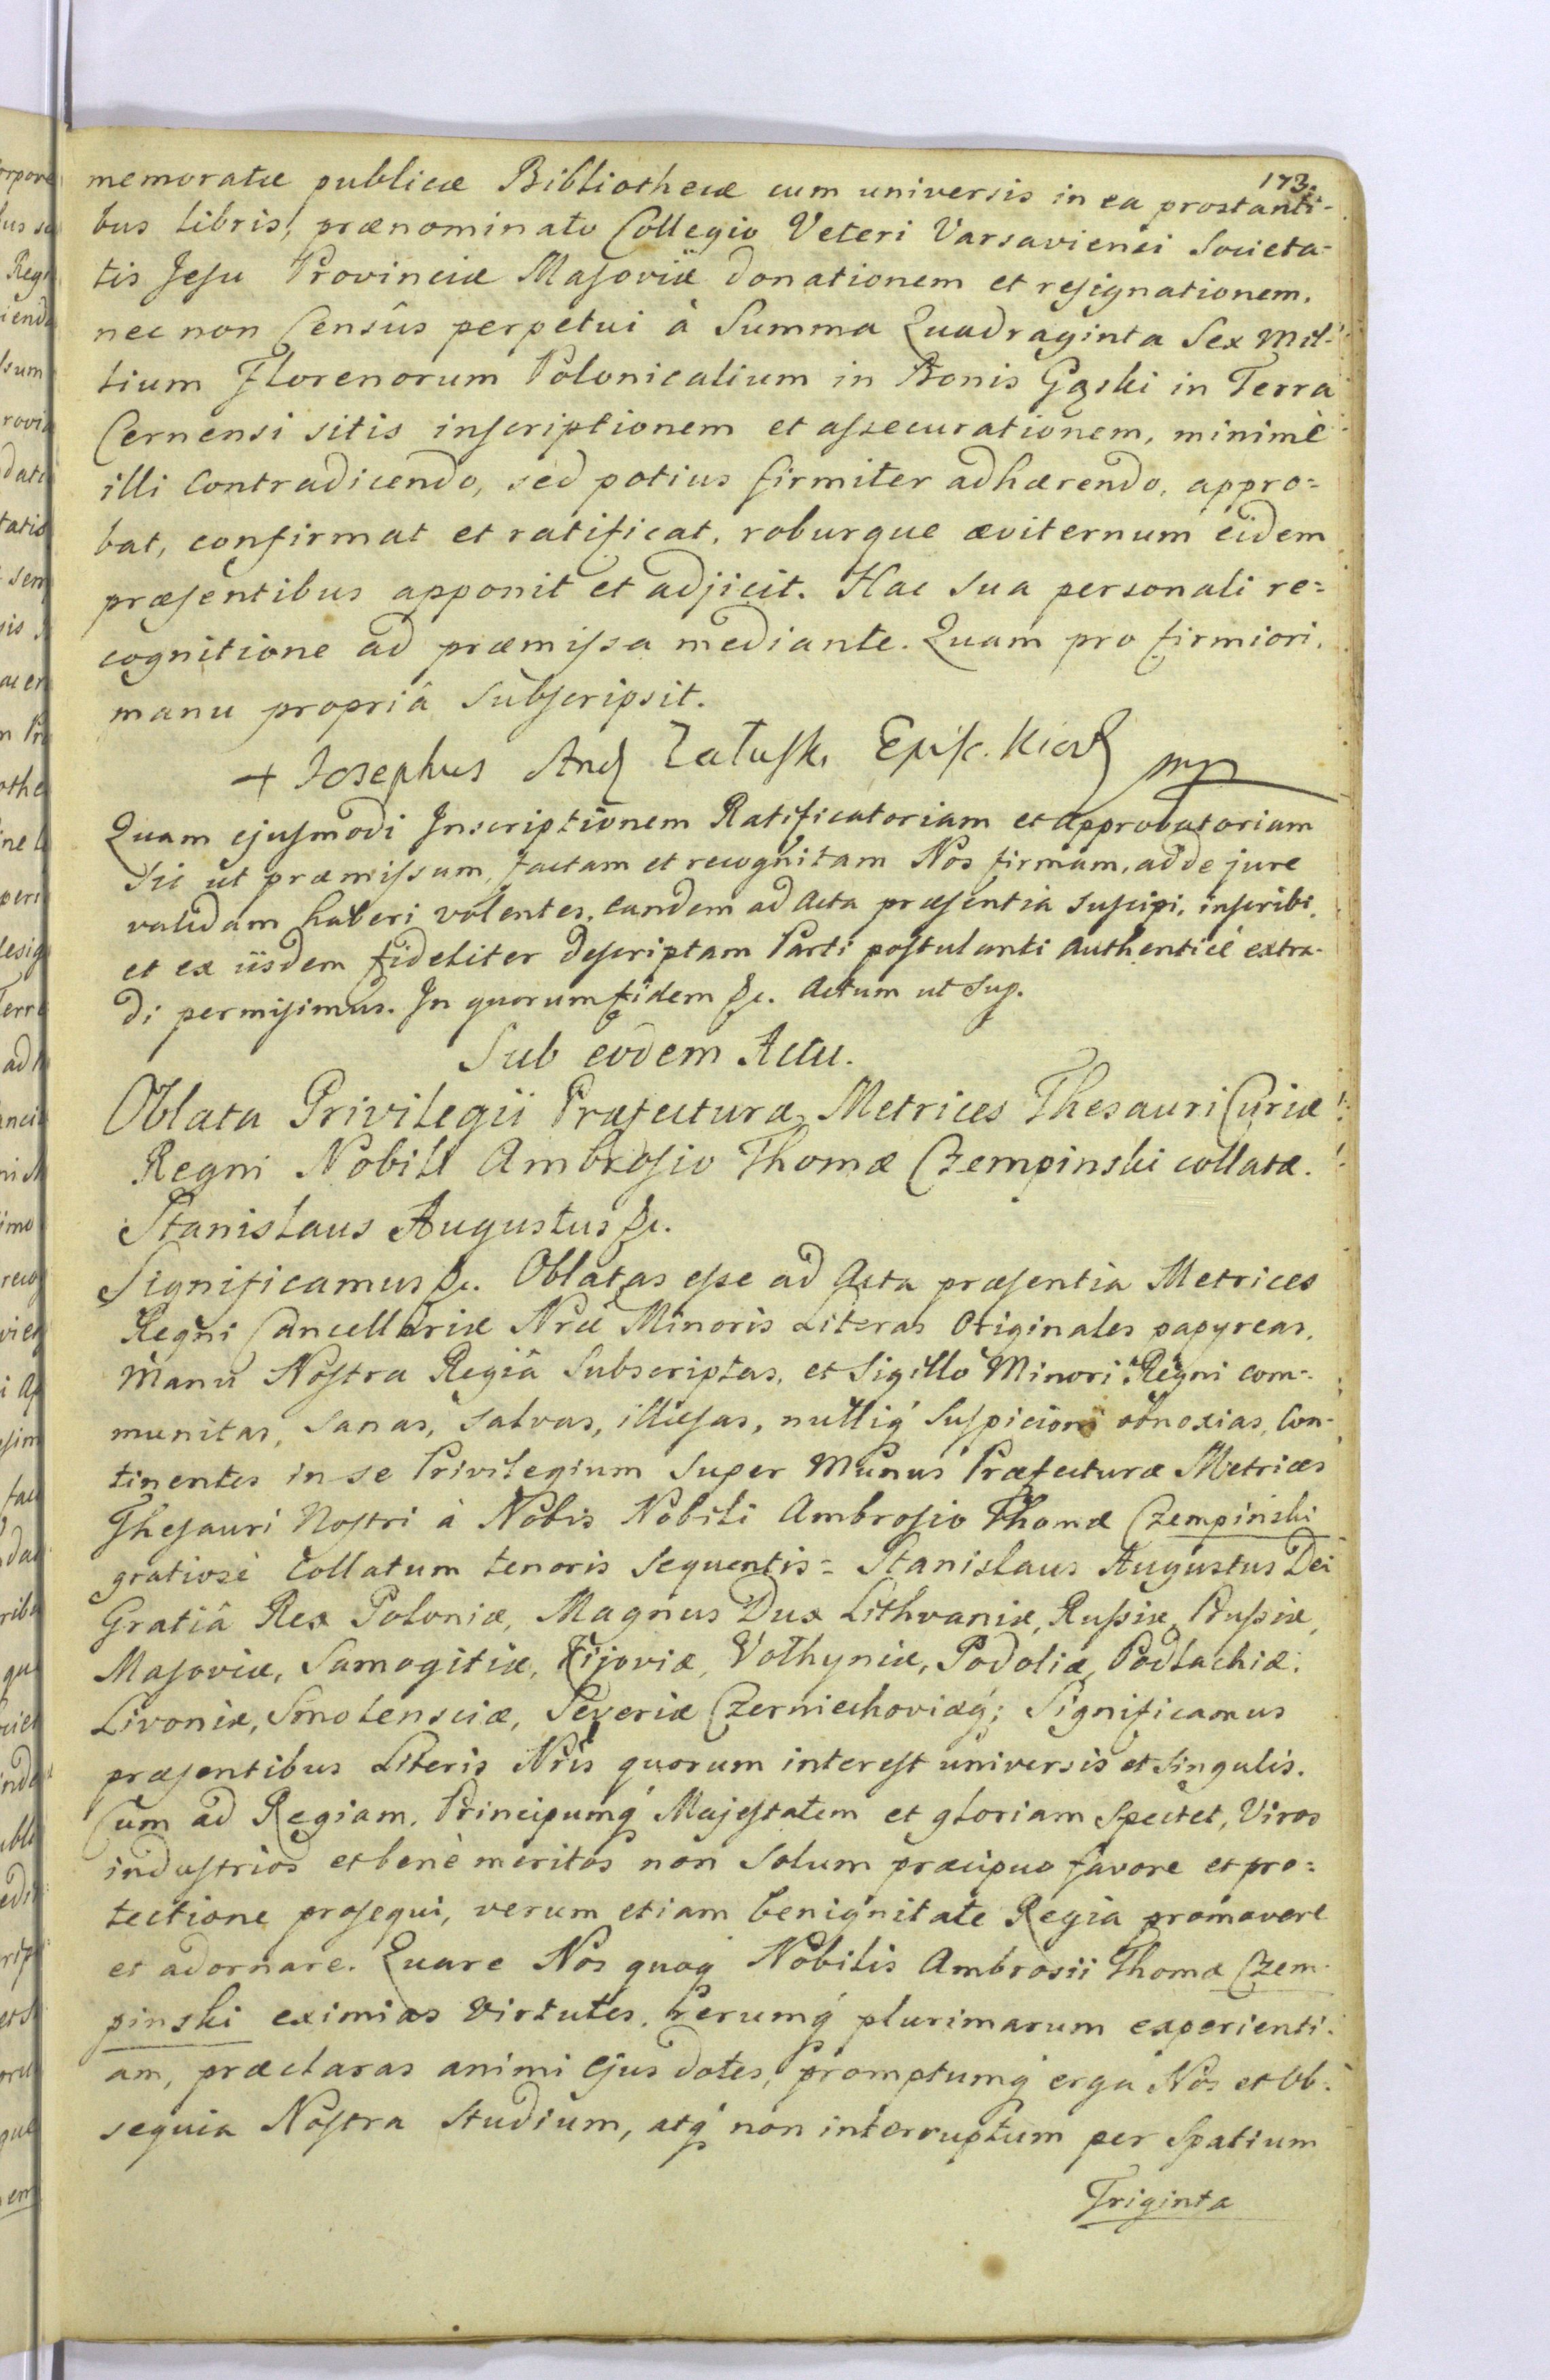 173.
memoratæ publicæ Bibliothecæ cum universis in ea prostanti-
bus libris, prænominato Collegio Veteri Varsaviensi Societa-
tis Jesu Provinciæ Masoviæ donationem et resignationem,
nec non Censûs perpetui à Summa Quadraginta Sex Mil-
lium Florenorum Polonicalium in Bonis Gąski in Terra
Cernensi sitis inscriptionem et assecurationem, minimè
illi Contradicendo, sed potius firmiter adhærendo, appro=
bat, confirmat et ratificat, roburque æviternum eidem
præsentibus apponit et adjicit. Hac Sua personali re=
cognitione ad præmissa mediante. Quam pro firmiori,
manu propriâ Subscripsit.
+ Josephus And Załuski Episc. Kiov mp
Quam ejusmodi Inscriptionem Ratificatoriam et approbatoriam
Sic ut præmissum, factam et recognitam Nos firmam, ad de jure
validam haberi volentes, eandem ad Acta præsentia suscipi, inscribi,
et ex iisdem fideliter descriptam Parti postulanti Authenticè extra-
di permisimus. In quorum fidem &c. Actum ut Sup.
Sub eodem Actu.
Oblata Privilegii Præfecturæ Metrices Thesauri Curiæ
Regni Nobili Ambrosio Thomæ Czempinski collatæ.
Stanislaus Augustus &c.
Significamus &c. Oblatas esse ad Acta præsentia Metrices
Regni Cancellariæ Nræ Minoris Literas Originales papyreas,
Manu Nostra Regiâ Subscriptas, et Sigillo Minori Regni com-
munitas, Sanas, Salvas, illæsas, nulliq́ Suspicioni obnoxias, Con-
tinentes in se Privilegium Super Munus Præfecturæ Metrices
Thesauri Nostri à Nobis Nobili Ambrosio Thomæ Czempinski
gratiosè Collatum tenoris Sequentis = Stanislaus Augustus Dei
Gratiâ Rex Poloniæ, Magnus Dux Lithvaniæ, Russiæ, Prussiæ,
Masoviæ, Samogitiæ, Kijoviæ, Volhyniæ, Podoliæ, Podlachiæ,
Livoniæ, Smolensciæ, Severiæ Czerniechoviæq́; Significamus
præsentibus Literis Nris quorum interest universis et Singulis.
Cum ad Regiam, Principumq́ Majestatem et gloriam Spectet, Viros
industrios et benè meritos non Solum præcipuo favore et pro=
tectione prosequi, verum etiam benignitate Regia promovere
et adornare. Quare Nos quoq́ Nobilis Ambrosii Thomæ Czem-
pinski eximias Virtutes, rerumq́ plurimarum experienti-
am, præclaras animi Ejus dotes, promptumq́ erga Nos et Ob-
sequia Nostra Studium, atq́ non interruptum per Spatium
Triginta